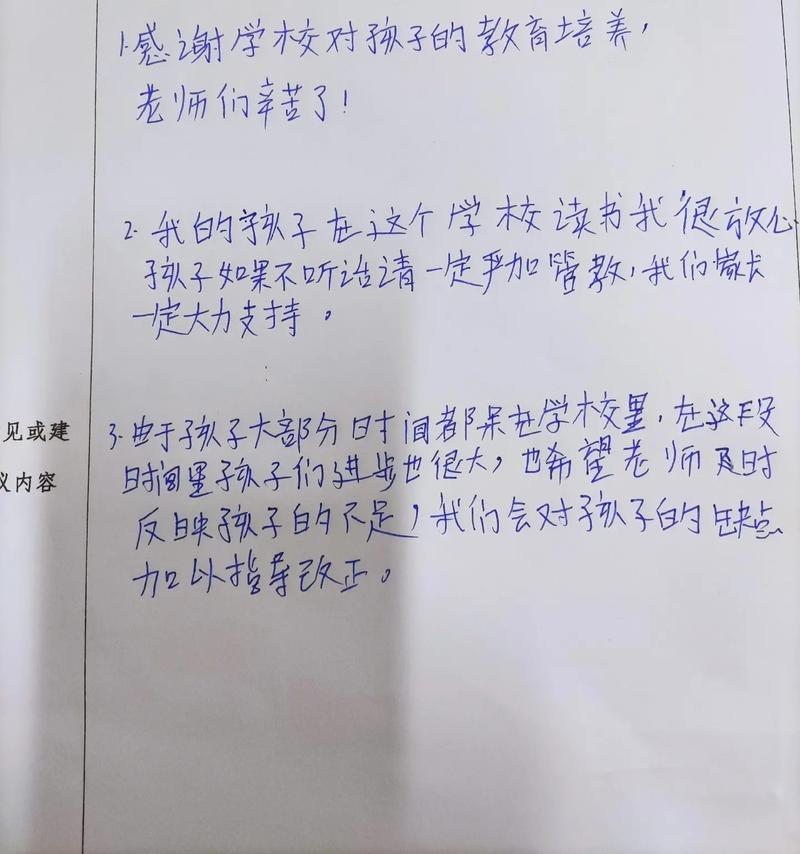 1.感谢学校对孩子的教育培养,
老师们辛苦了!
2.我的孩子在这个学校读书我很放心
孩子如果不听话请一定严加管教,我们家长
一定大力支持。
见或建
议内容
3.由于孩子大部分时间都呆在学校里,在这段
时间里孩子们进步也很大,也希望老师及时
反映孩子的不足,我们会对孩子的缺点
加以指导改正。